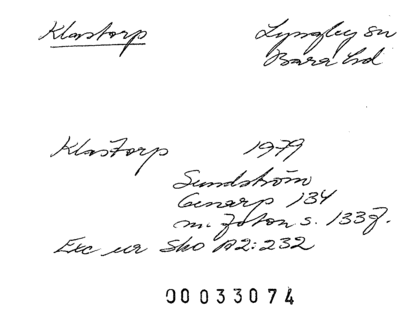 Klastorp
Lyngby sn
Bara hd
Klastorp 1979
Sundström
Genarp 134
m. foton s. 133f.
Exc ur Sko A2:232
00033074